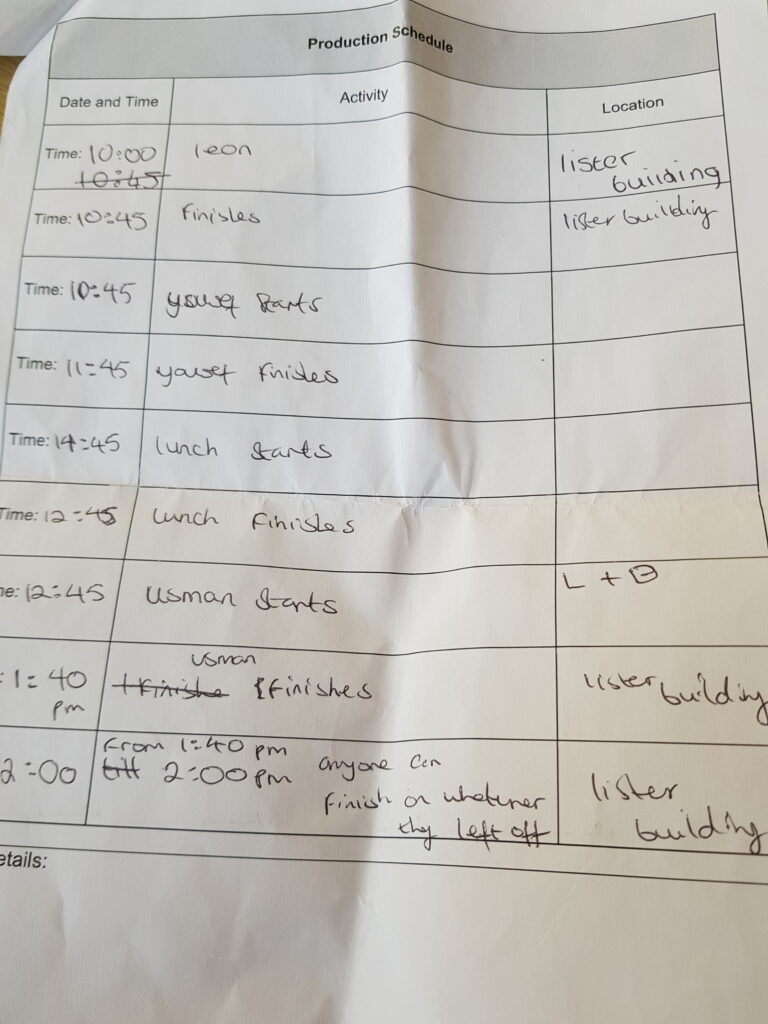 Production Schedule
Date and Time Activity Location
Time: 10:00 leon lister
10:45 building
Time: 10:45 Finisles lister building
Time: 10:45 yousef starts
Time: 11:45 yousef Finisles
Time: 14:45 lunch starts
Time: 12:45 lunch Finisles
me: 12:45 usman starts L + B
usman
: 1:40 +Finishe finishes lister building
pm
From 1:40 pm
2:00 till 2:00 pm anyone can lister
Finish on whatever building
they left off
etails: